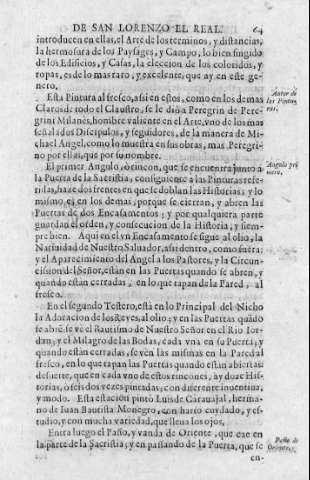 DE SAN LORENZO EL REAL. 64
introducen en ellas, el Arte de los terminos, y distancias,
la hermosura de los Paysages, y Campo, lo bien fingido
de los Edificios, y Casas, la eleccion de los coloridos, y
ropas, es de lo mas raro, y excelente, que ay en este ge-
nero.
Esta Pintura al fresco, assi en estos, como en los demas
Claros de todo el Claustro, se le diò a Peregrin de Pere-
grini Milanès, hombre valiente en el Arte, vno de los mas
señalados Discipulos, y seguidores, de la manera de Mi-
chael Angel, como lo muestra en sus obras, mas Peregri-
no por ellas, que por su nombre.
Autor de
las Pintu-
ras.
El primer Angulo, ò rincon, que se encuentra junto a
la Puerta de la Sacristia, consiguiente a las Pinturas refe-
ridas, haze dos frentes en que se doblan las Historias; y lo
mismo es en los demas, porque se cierran, y abren las
Puertas de dos Encasamentos; y por qualquiera parte
guardan el orden, y consecucion de la Historia, y siem-
pre bien. Aqui en el vn Encasamento se sigue al olio, la
Natividad de Nuestro Salvador, assi dentro, como fuera;
y el Aparecimiento del Angel a los Pastores, y la Circun-
cision del Señor, estàn en las Puertas quando se abren, y
quando estàn cerradas, en lo que tapan de la Pared, al
fresco.
Angulo pri
mero.
En el segundo Testero, està en lo Principal del Nicho
la Adoracion de los Reyes, al olio; y en las Puertas quãdo
se abrẽ se ve el Bautismo de Nuestro Señor en el Rio Ior-
dan; y el Milagro de las Bodas, cada vna en su Puerta; y
quando estàn cerradas, se vèn las mismas en la Pared al
fresco, en lo que tapan las Puertas quando estàn abiertas:
de suerte, que en cada vno de estos rincones, ay doze His-
torias, ò seis dos vezes pintadas; con diferente inventiva,
y modo. Esta estacion pintò Luis de Carauajal, herma-
no de Iuan Bautista Monegro, con harto cuydado, y es-
tudio, y con mucha variedad, que llena los ojos.
Entra luego el Paño, y vanda de Oriente, que cae en
la parte de la Sacristia; y en passando de la Puerta, que se
Paño de
Oriente.
en-